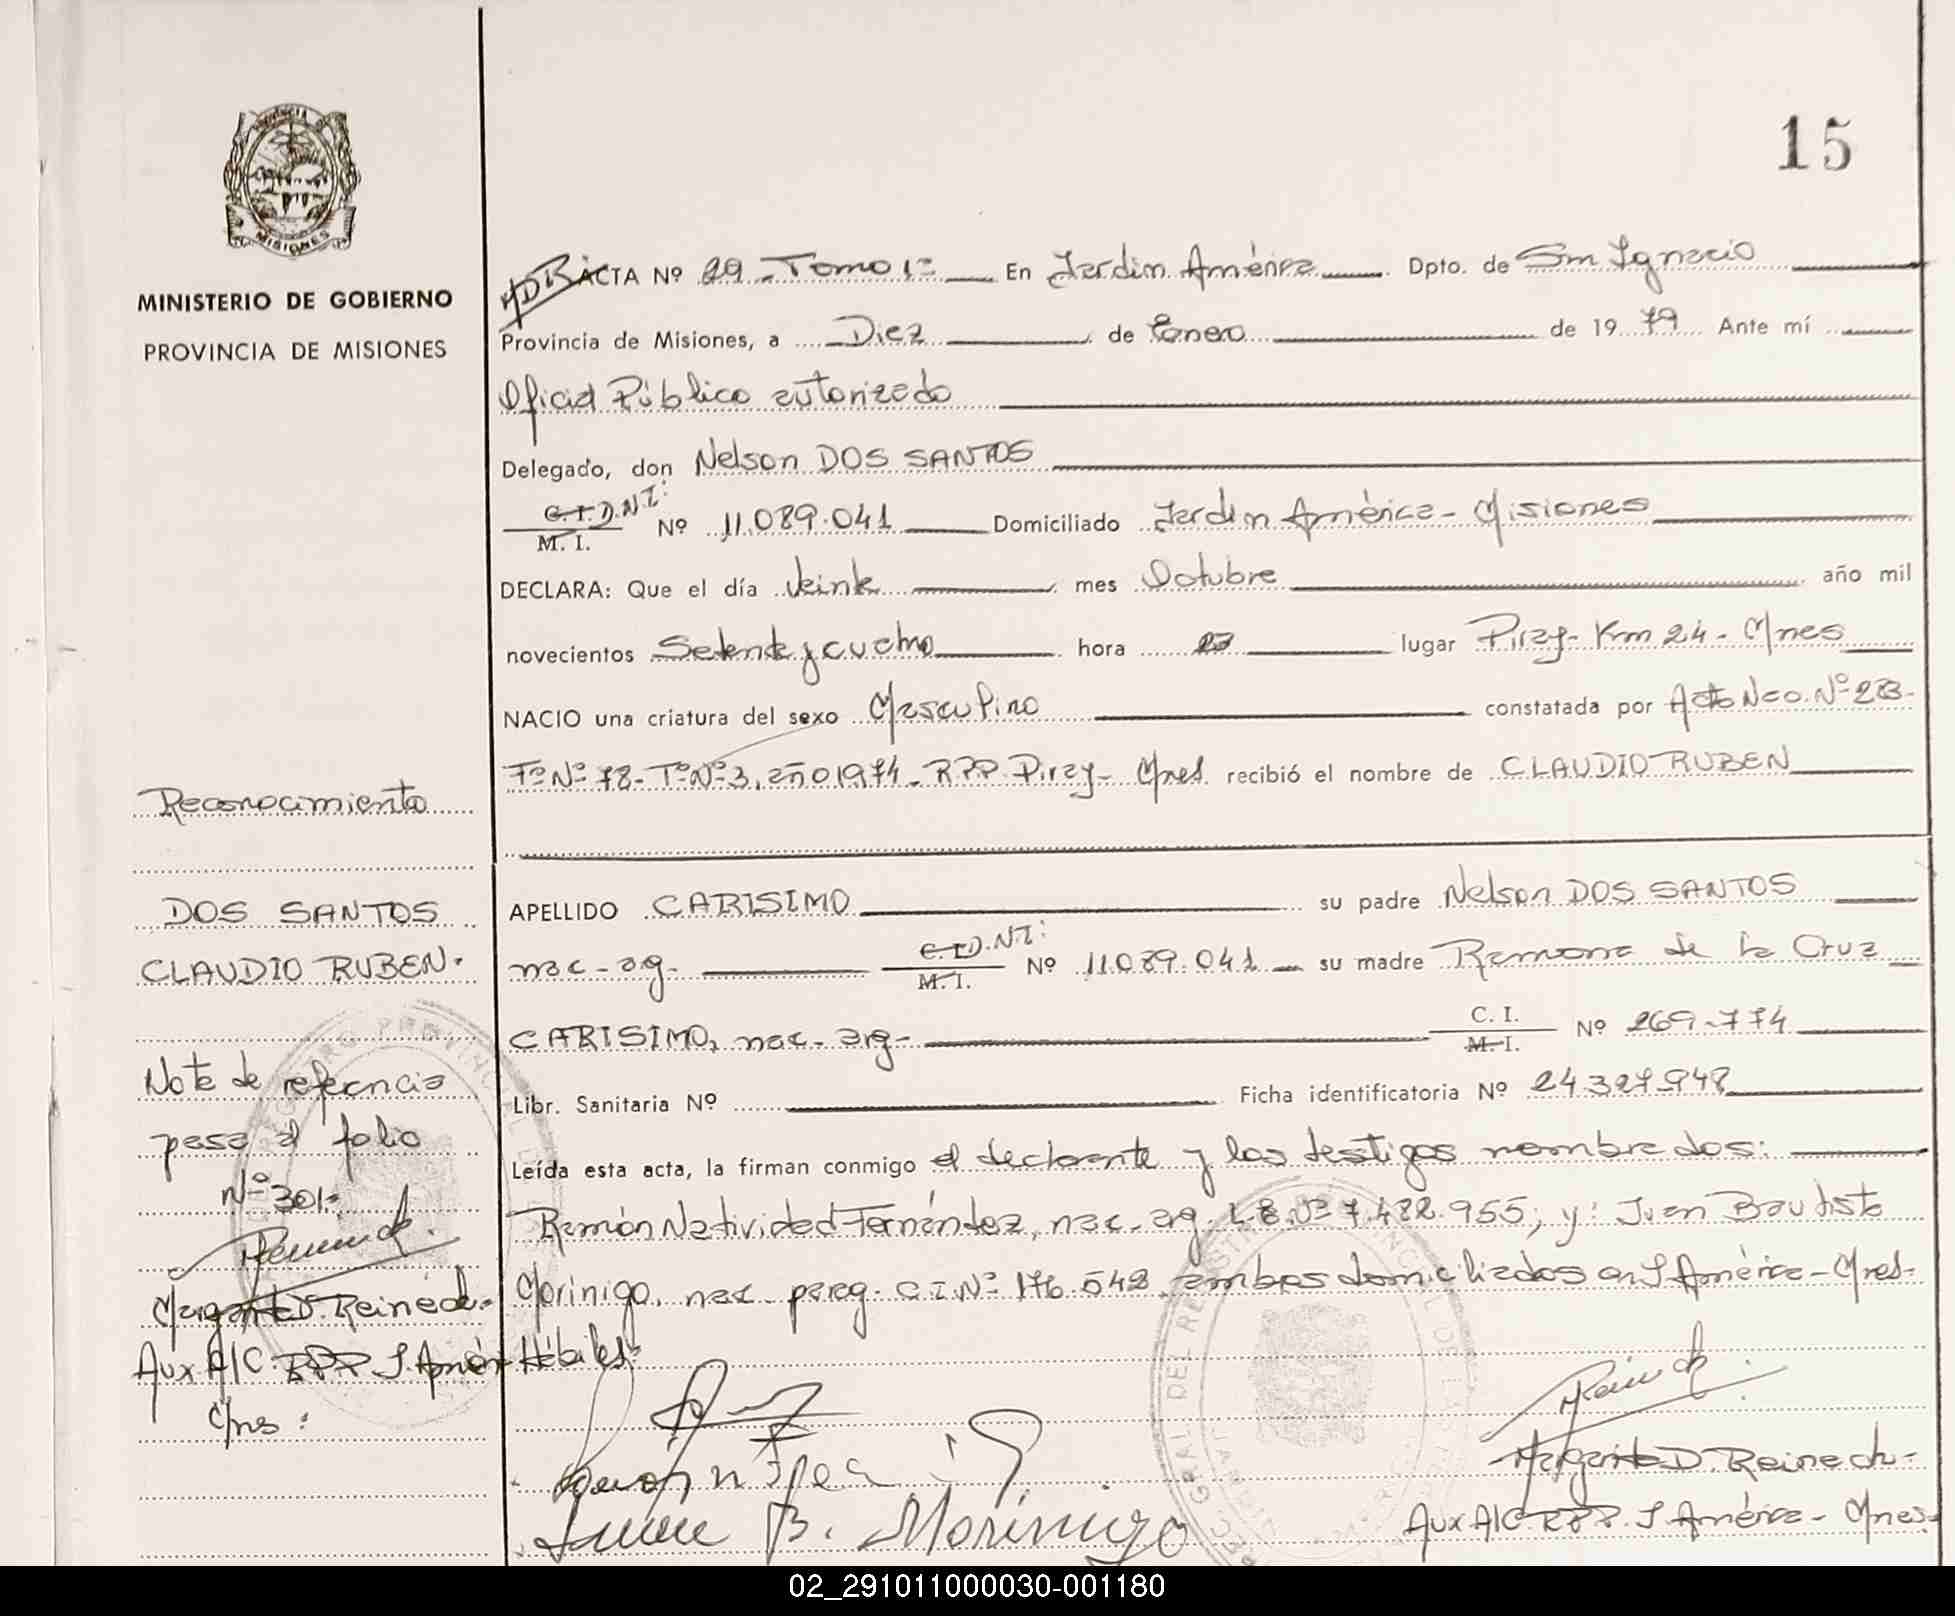 15
MISIONES
MINISTERIO DE GOBIERNO
PROVINCIA DE MISIONES
ACTA Nº 29 - Tomo 1º En Jardín América Dpto. de San Ignacio
Provincia de Misiones, a Diez de Enero de 19 79 Ante mí
Oficial Público autorizado
Delegado, don Nelson DOS SANTOS
C.I. D.N.I:
M. I. Nº 11.089.041 Domiciliado Jardín América - Misiones
DECLARA: Que el día Veinte mes Octubre año mil
novecientos Setenta y cuatro hora 23 lugar Piray - Km 24 - Mnes
NACIO una criatura del sexo Masculino constatada por Acta Nac. Nº 283-
Fº Nº 78 - Tº Nº 3, año 1974 - RPP. Piray - Mnes. recibió el nombre de CLAUDIO RUBEN
APELLIDO CARISIMO su padre Nelson DOS SANTOS
nac - arg - C.I. D.N.I:
M. I. Nº 11.089.041 su madre Ramona de la Cruz
CARISIMO, nac - arg - C. I.
M. I. Nº 269.774
Libr. Sanitaria Nº Ficha identificatoria Nº 24.327.948
Leída esta acta, la firman conmigo el declarante y los testigos nombrados:
Ramón Natividad Fernández, nac - arg - L.E. Nº 7.482.955; y: Juan Bautista
Morinigo, nac - parag. C.I. Nº 176.548, ambos domiciliados en J. América - Mnes -
Hábiles
Juan B. Morinigo
Margarita D. Reineck -
Aux A/C. RPP. J. América - Mnes -
Reconocimiento
DOS SANTOS
CLAUDIO RUBEN.
Nota de referencia
pasa al folio
Nº 301.
Margarita D. Reineck -
Aux A/C RPP J. Amér
Mns:
02_291011000030-001180